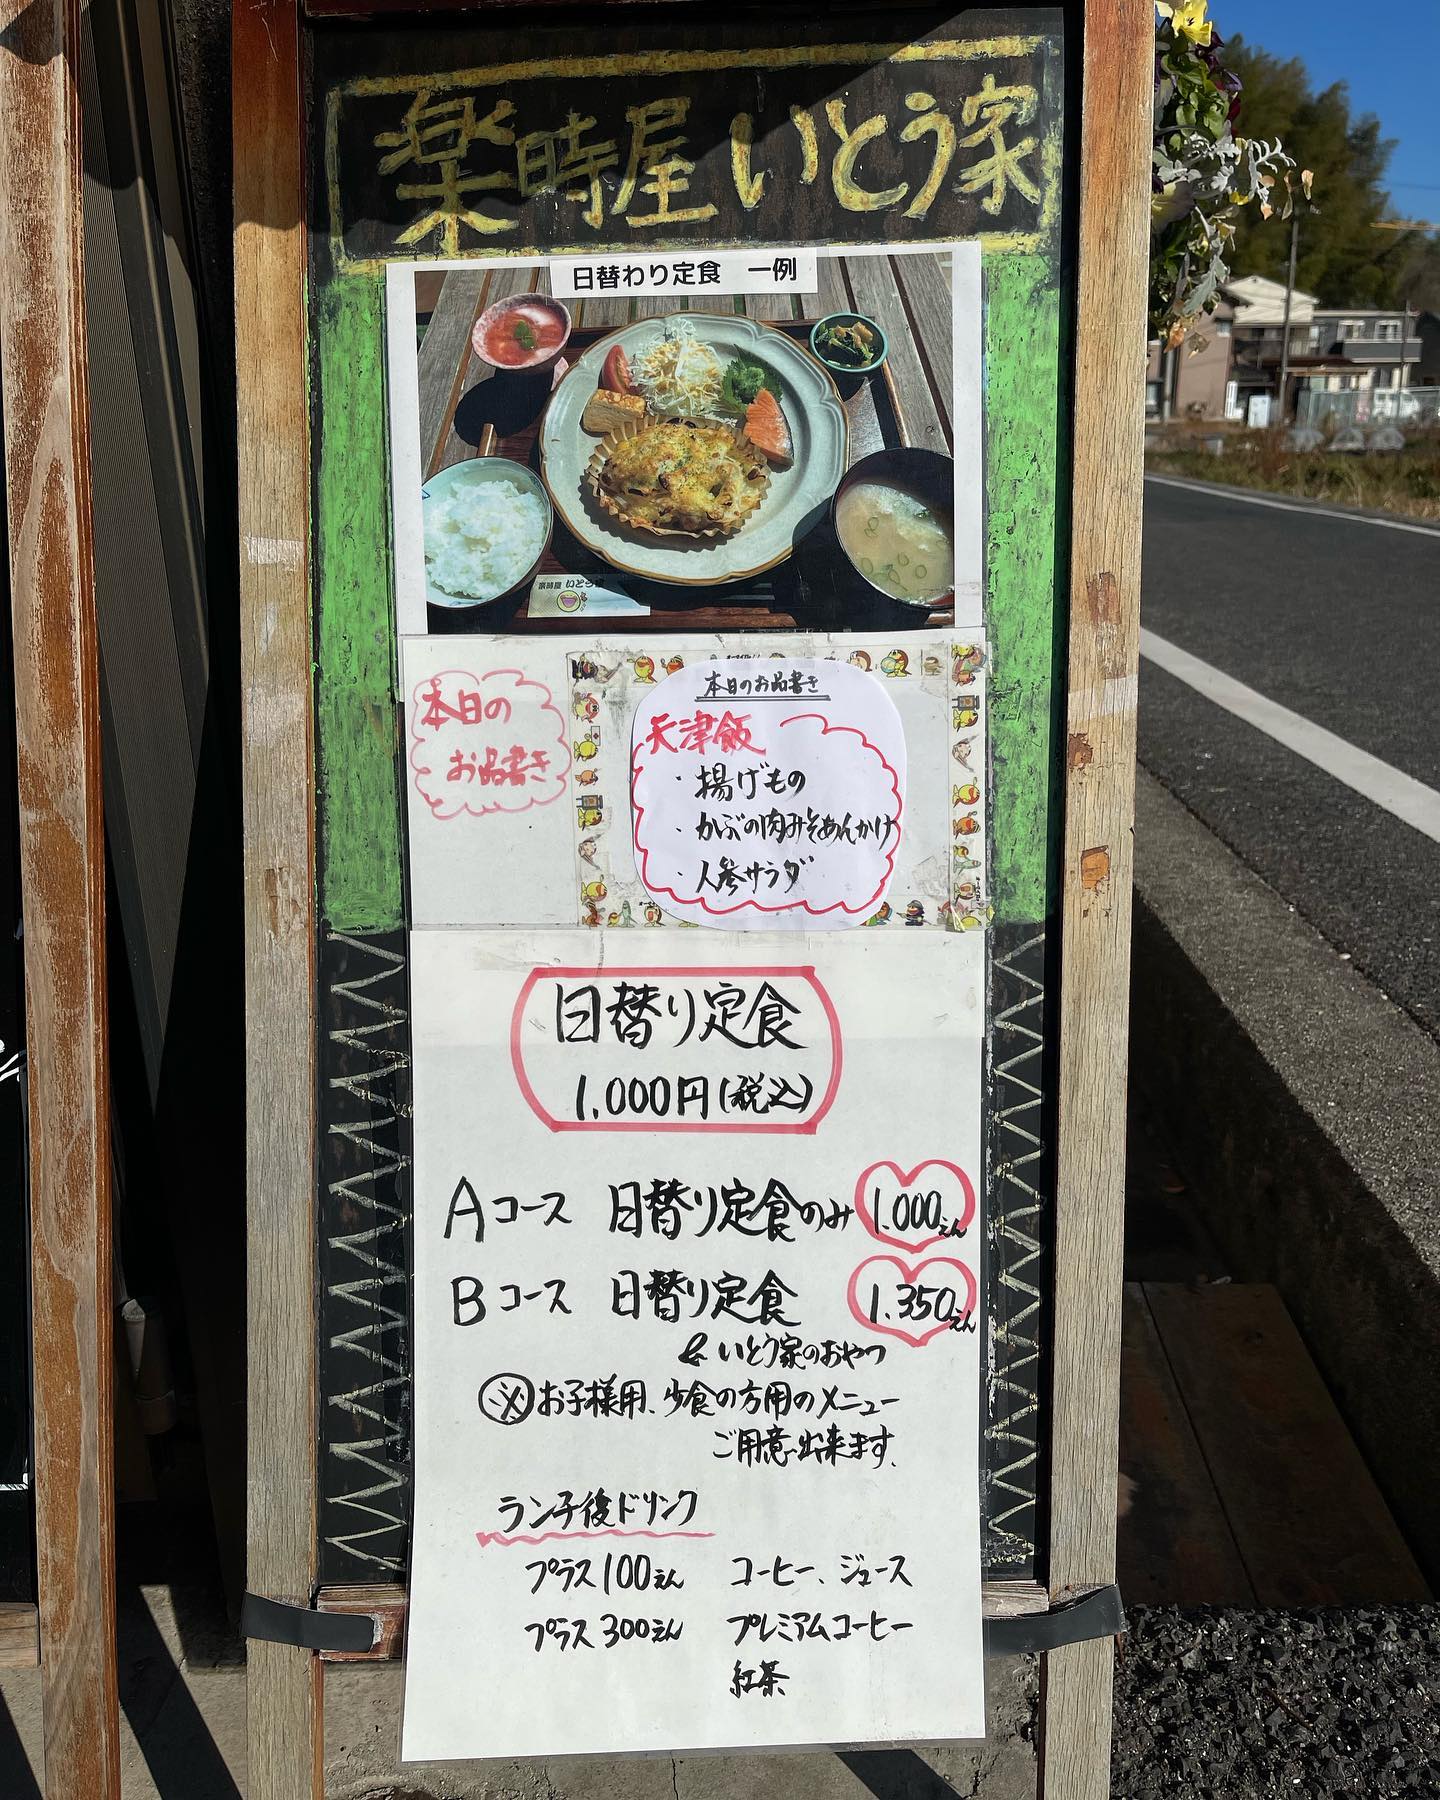 楽時屋 いとう家
日替わり定食 一例
楽時屋 いとう家
本日の
お品書き
本日のお品書き
天津飯
・揚げもの
・かぶの肉みそあんかけ
・人参サラダ
日替り定食
1,000円(税込)
Aコース 日替り定食のみ 1.000えん
Bコース 日替り定食 1.350えん
& いとう家のおやつ
※お子様用、少食の方用のメニュー
ご用意出来ます。
ランチ後ドリンク
プラス100えん コーヒー、ジュース
プラス300えん プレミアムコーヒー
紅茶